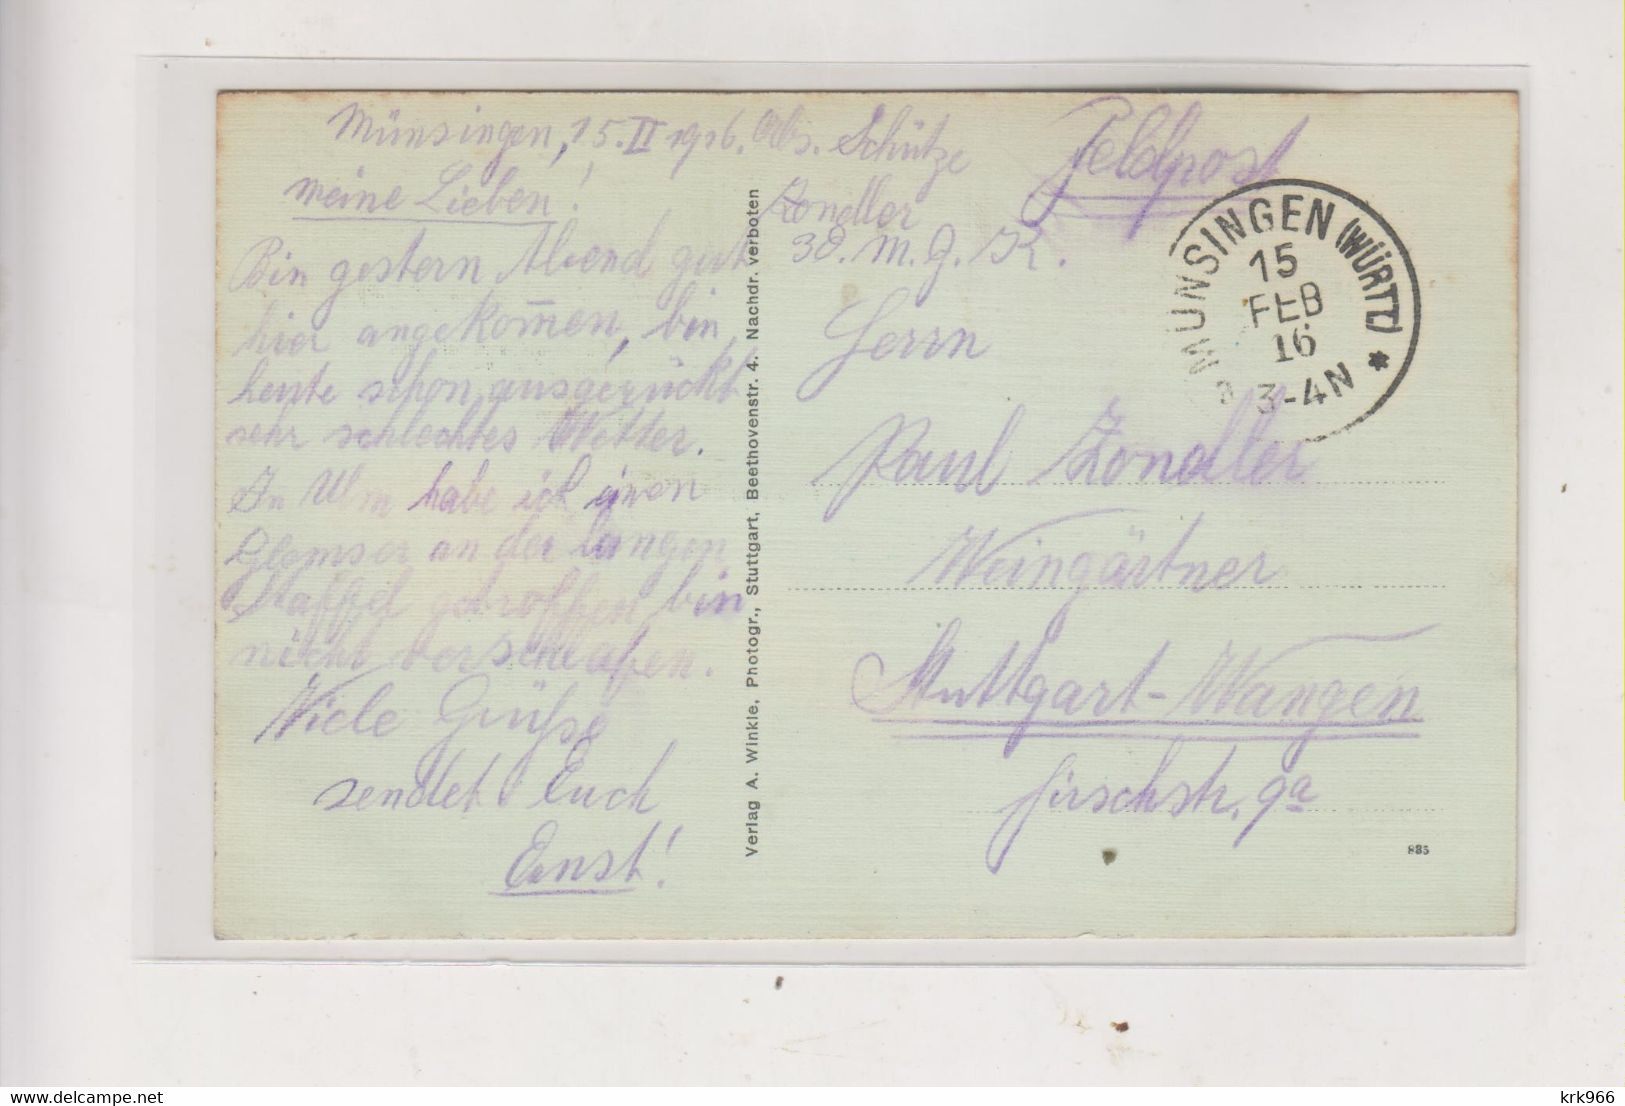 Münsingen, 15. II 1916.
meine Lieben!
Bin gestern Abend gut
hier angekom̅en, bin
heute schon ausgerückt
sehr schlechtes Wetter.
In Ulm habe ich einen
an der langen
Staffel getroffen bin
nicht verschlafen.
Viele Grüße
sendet Euch
Ernst!
Verlag A. Winkle, Photogr., Stuttgart, Beethovenstr. 4. Nachdr. verboten
Abs. Schütze
Zondler
30. M. G. K.
Feldpost
MÜNSINGEN (WÜRTT.)
15
FEB
16
3-4N
*
Herrn
Paul Zondler
Weingärtner
Stuttgart-Wangen
Hirschstr. 9a
885
krk966